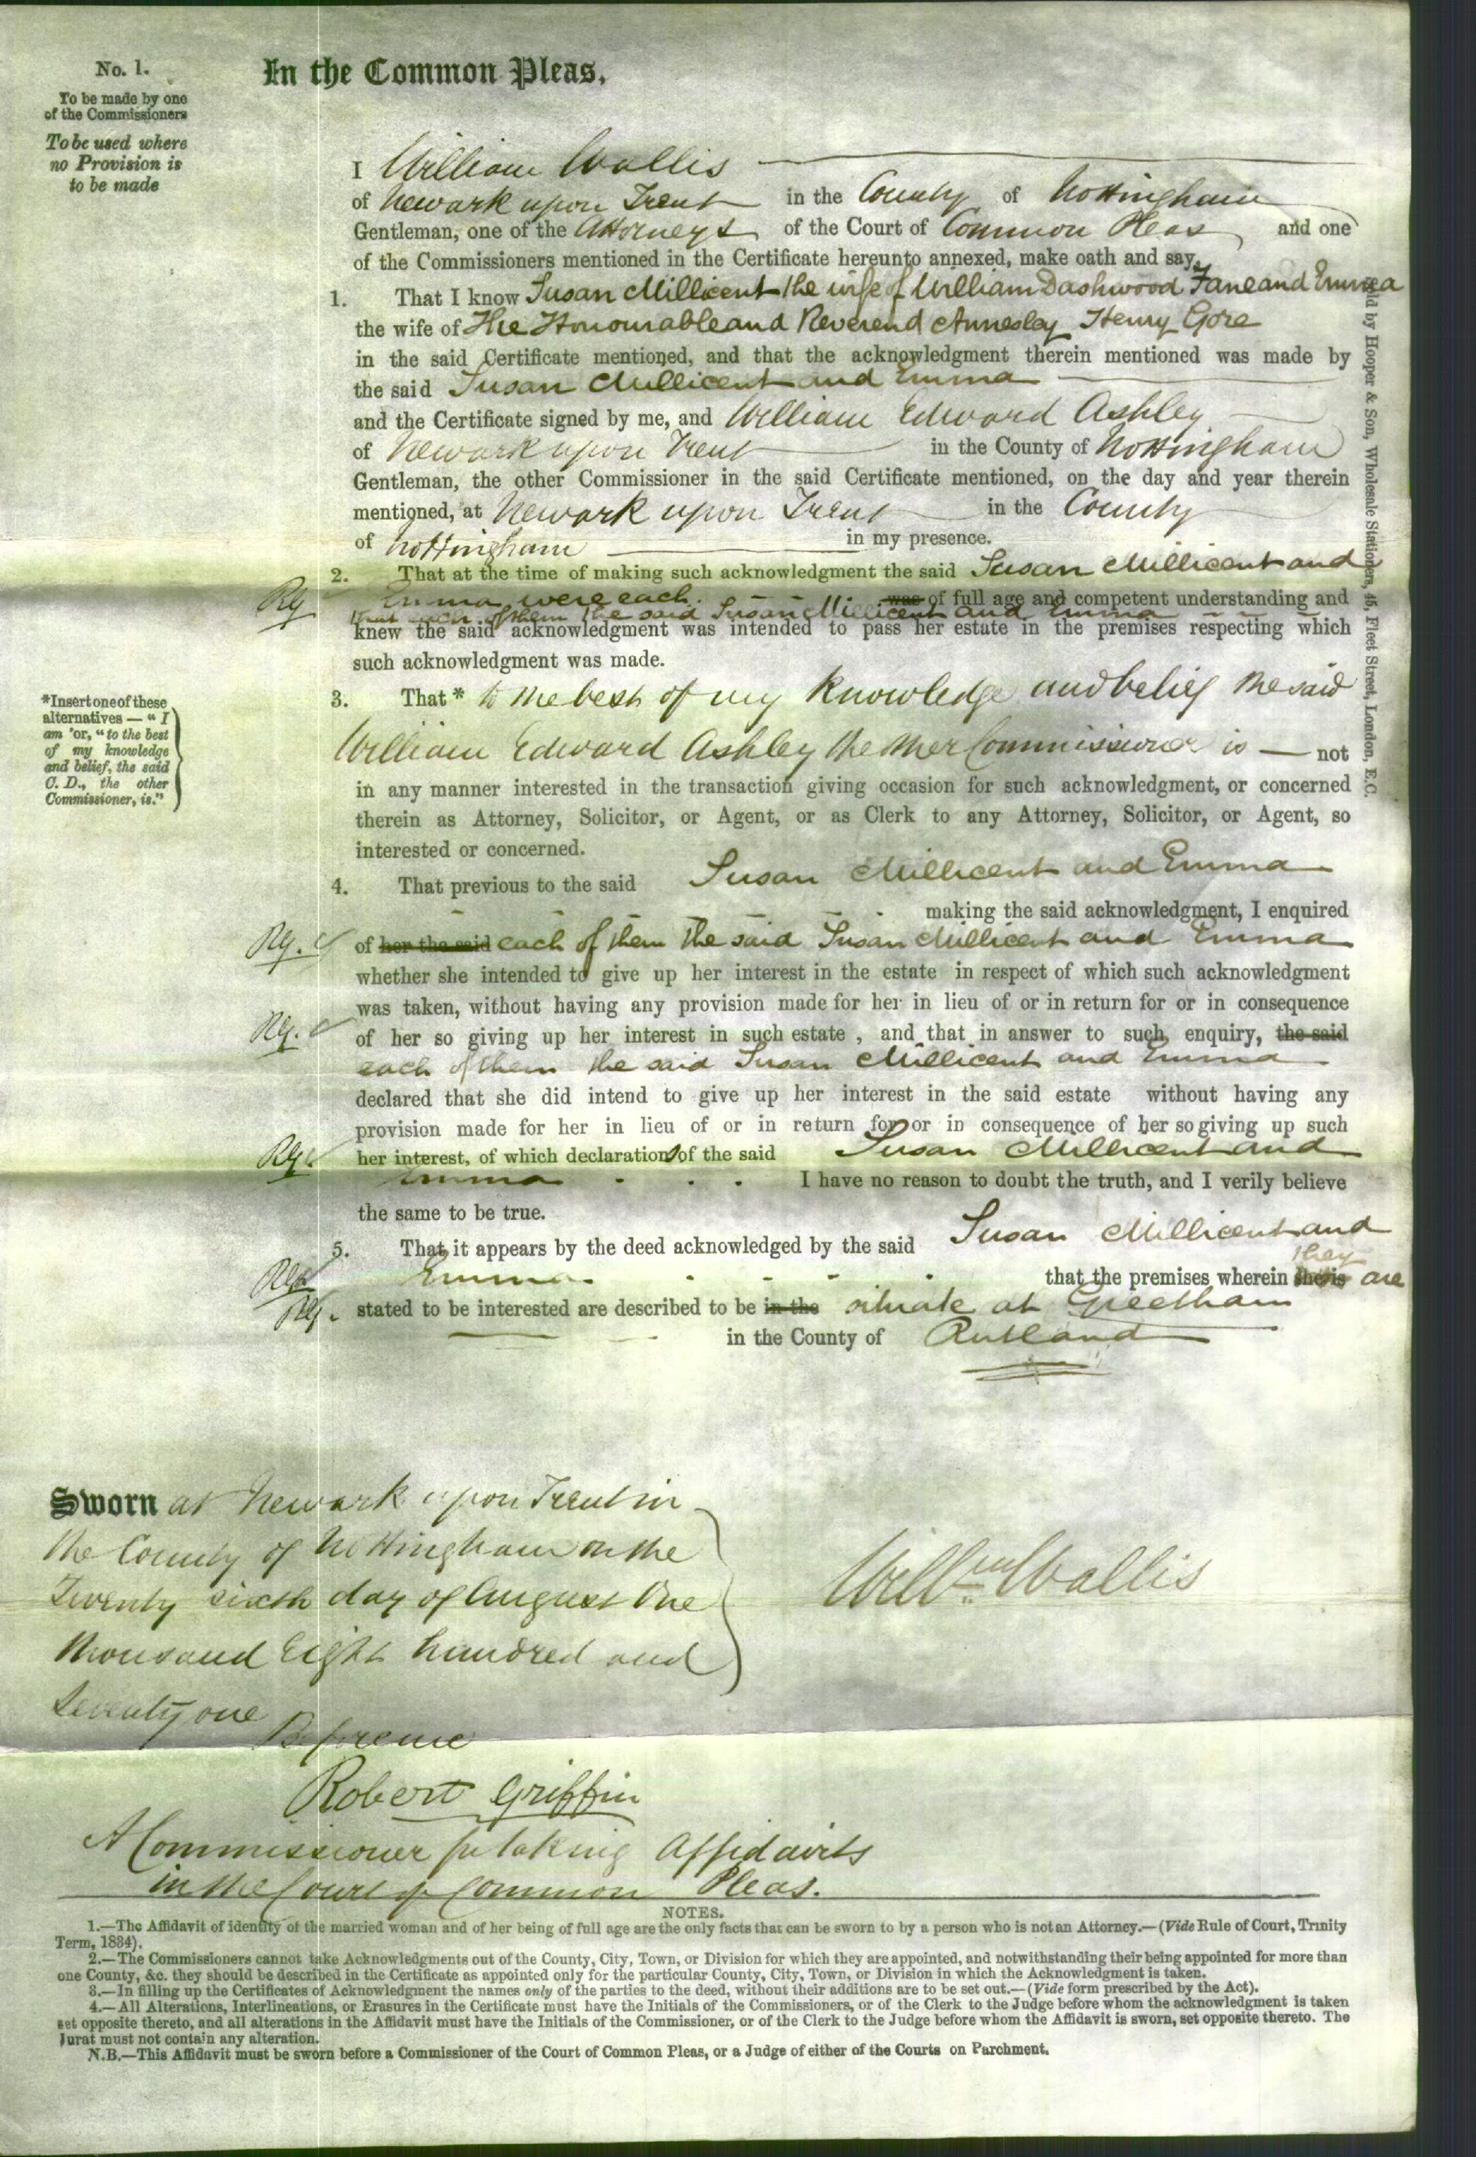 No. 1.
To be made by one
of the Commissioners
To be used where
no Provision is
to be made
In the Common Pleas.
I William Wallis
of Newark upon Trent in the County of Nottingham
Gentleman, one of the Attorneys of the Court of Common Pleas and one
of the Commissioners mentioned in the Certificate hereunto annexed, make oath and say,
1. That I know Susan Millicent the wife of William Dashwood Fane and Emma
the wife of The Honourable and Reverend Annesley Henry Gore
in the said Certificate mentioned, and that the acknowledgment therein mentioned was made by
the said Susan Millicent and Emma
and the Certificate signed by me, and William Edward Ashley
of Newark upon Trent in the County of Nottingham
Gentleman, the other Commissioner in the said Certificate mentioned, on the day and year therein
mentioned, at Newark upon Trent in the County
of Nottingham in my presence.
2. That at the time of making such acknowledgment the said Susan Millicent and
Rg Emma were each was of full age and competent understanding and
that each of them the said Susan Millicent and Emma
knew the said acknowledgment was intended to pass her estate in the premises respecting which
such acknowledgment was made.
*Insert one of these
alternatives — "I
am" or, "to the best
of my knowledge
and belief, the said
C. D., the other
Commissioner, is."
3. That * to the best of my knowledge and belief the said
William Edward Ashley the other Commissioner is — not
in any manner interested in the transaction giving occasion for such acknowledgment, or concerned
therein as Attorney, Solicitor, or Agent, or as Clerk to any Attorney, Solicitor, or Agent, so
interested or concerned.
4. That previous to the said Susan Millicent and Emma
making the said acknowledgment, I enquired
Rg. of her the said each of them the said Susan Millicent and Emma
whether she intended to give up her interest in the estate in respect of which such acknowledgment
was taken, without having any provision made for her in lieu of or in return for or in consequence
Rg. of her so giving up her interest in such estate , and that in answer to such enquiry, the said
each of them the said Susan Millicent and Emma
declared that she did intend to give up her interest in the said estate without having any
provision made for her in lieu of or in return for or in consequence of her so giving up such
Rg. her interest, of which declarations of the said Susan Millicent and
Emma I have no reason to doubt the truth, and I verily believe
the same to be true.
5. That it appears by the deed acknowledged by the said Susan Millicent and
they
Rg Emma that the premises wherein she is are
Rg. stated to be interested are described to be in the situate at Greetham
in the County of Rutland
Sold by Hooper & Son, Wholesale Stationers, 45, Fleet Street, London, E.C.
Sworn at Newark upon Trent in
the County of Nottingham on the
Twenty sixth day of August One
thousand Eight hundred and
Seventy one
Before me
Willm Wallis
Robert Griffin
A Commissioner for taking Affidavits
in the Court of Common Pleas.
NOTES.
1.—The Affidavit of identity of the married woman and of her being of full age are the only facts that can be sworn to by a person who is not an Attorney.—(Vide Rule of Court, Trinity
Term, 1834).
2.—The Commissioners cannot take Acknowledgments out of the County, City, Town, or Division for which they are appointed, and notwithstanding their being appointed for more than
one County, &c. they should be described in the Certificate as appointed only for the particular County, City, Town, or Division in which the Acknowledgment is taken.
3.—In filling up the Certificates of Acknowledgment the names only of the parties to the deed, without their additions are to be set out.—(Vide form prescribed by the Act).
4.—All Alterations, Interlineations, or Erasures in the Certificate must have the Initials of the Commissioners, or of the Clerk to the Judge before whom the acknowledgment is taken
set opposite thereto, and all alterations in the Affidavit must have the Initials of the Commissioner, or of the Clerk to the Judge before whom the Affidavit is sworn, set opposite thereto. The
Jurat must not contain any alteration.
N.B.—This Affidavit must be sworn before a Commissioner of the Court of Common Pleas, or a Judge of either of the Courts on Parchment.